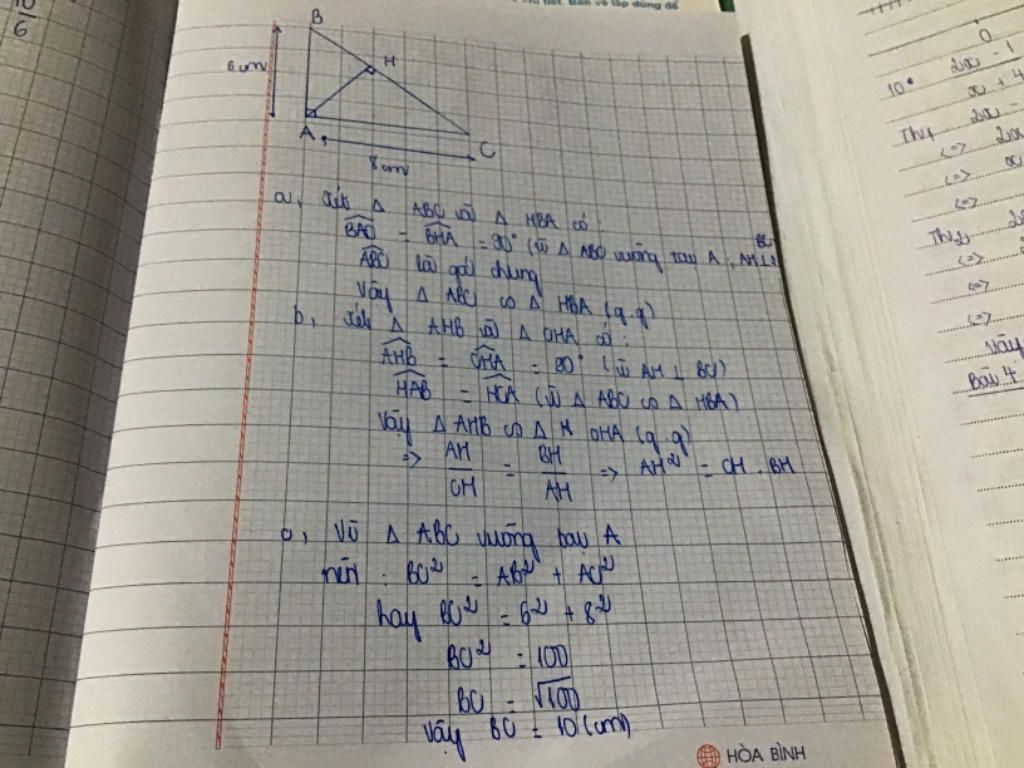 B
H
6cm
A
C
8cm
a, Xét Δ ABC và Δ HBA có:
BAC = BHA = 90° (vì Δ ABC vuông tại A, AH ⊥ BC)
ABC là góc chung
Vậy Δ ABC ∽ Δ HBA (g.g)
b, Xét Δ AHB và Δ CHA có:
AHB = CHA = 90° (vì AH ⊥ BC)
HAB = HCA (vì Δ ABC ∽ Δ HBA)
Vậy Δ AHB ∽ Δ CHA (g.g)
=> AH/CH = BH/AH => AH² = CH . BH
c, Vì Δ ABC vuông tại A
nên: BC² = AB² + AC²
hay BC² = 6² + 8²
BC² = 100
BC = √100
Vậy BC = 10 (cm)
HÒA BÌNH
10
6
10°
2x - 1
x + 4
TH1
2x -
<=> 2x
<=> x
<=>
TH2
<=>
<=>
<=>
Vậy
Bài 4